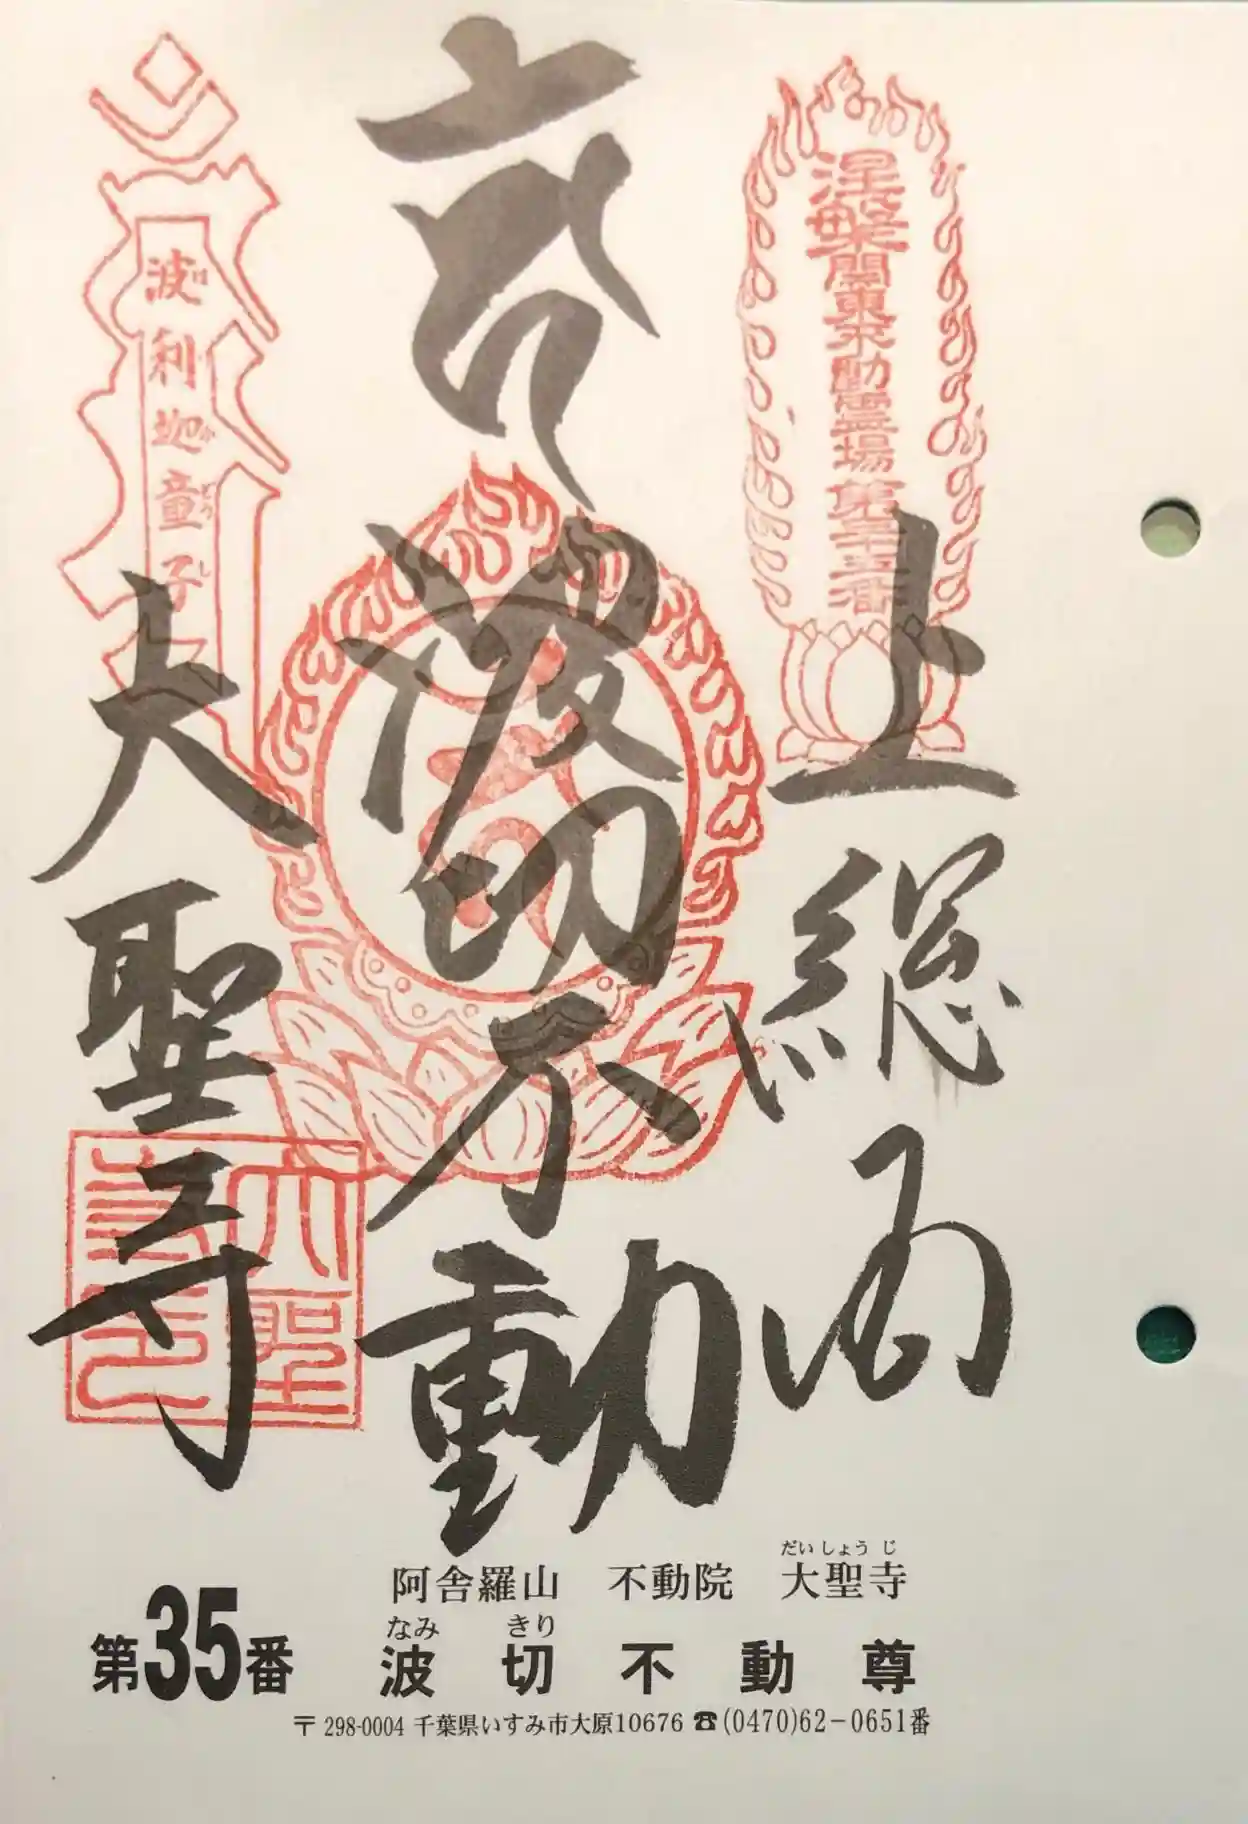 涅槃
関東不動霊場第三十五番
上総国
波切不動
波利迦童子
大聖寺
大聖
寺印
阿舎羅山 不動院 大聖寺
だいしょうじ
第35番
なみ きり
波切不動尊
〒298-0004 千葉県いすみ市大原10676 ☎(0470)62-0651番